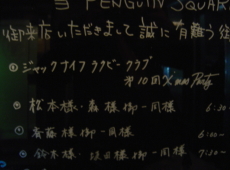 PENGUIN SQUAR
御来店いただきまして誠に有難う御
ジャックナイフラグビークラブ
第10回 X'mas Party
松本様・森様御一同様 6:30
斉藤様御一同様 6:00~
鈴木様・様御一同様 7:30~